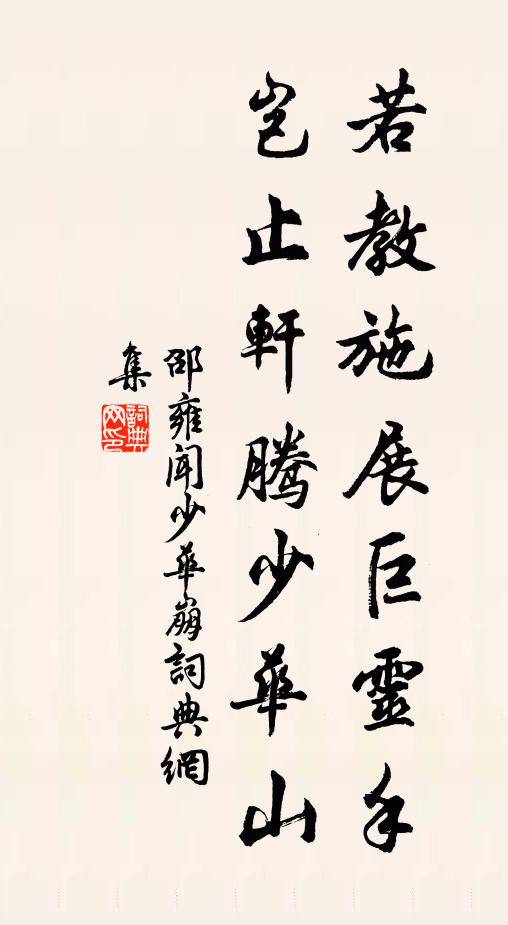 若教施展巨靈手
豈止軒騰少華山
邵雍聞少華崩詞典網
集
詞典
网印